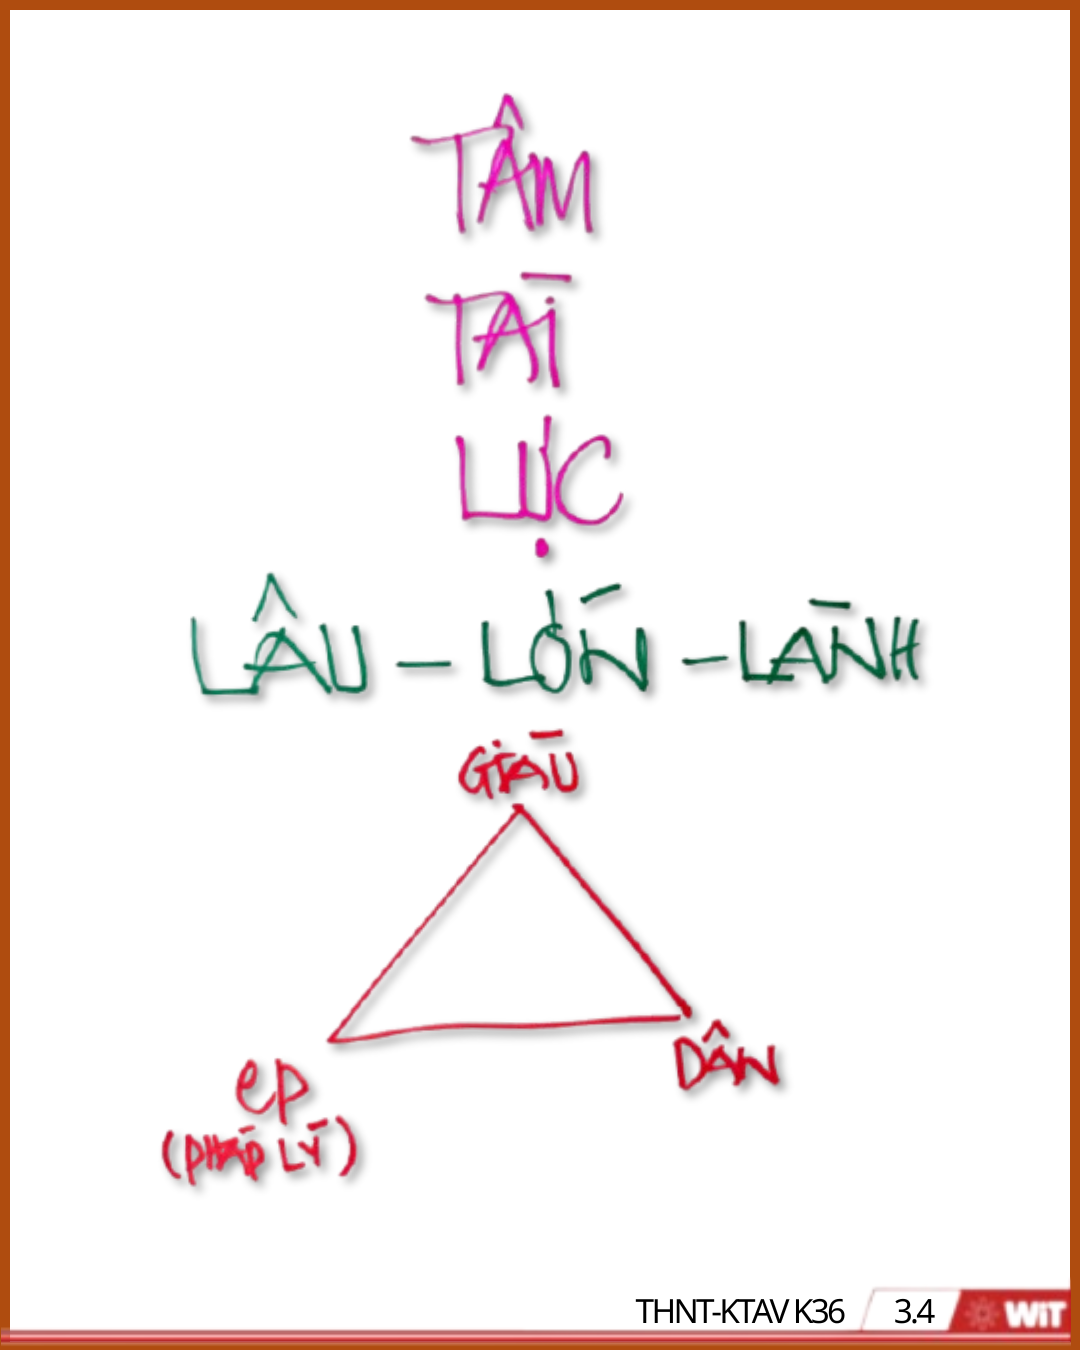 TÂM
TÀI
LỰC
LÂU – LỚN – LÀNH
GIÀU
DÂN
eP
(PHÁP LÝ)
THNT-KTAV K36 3.4 WiT